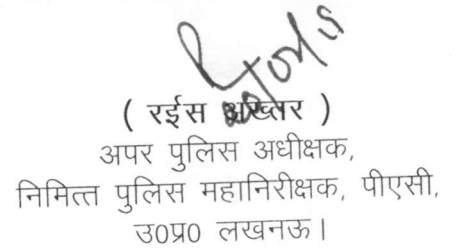 ( रईस अख्तर )
अपर पुलिस अधीक्षक,
निमित्त पुलिस महानिरीक्षक, पीएसी,
उ0प्र0 लखनऊ।